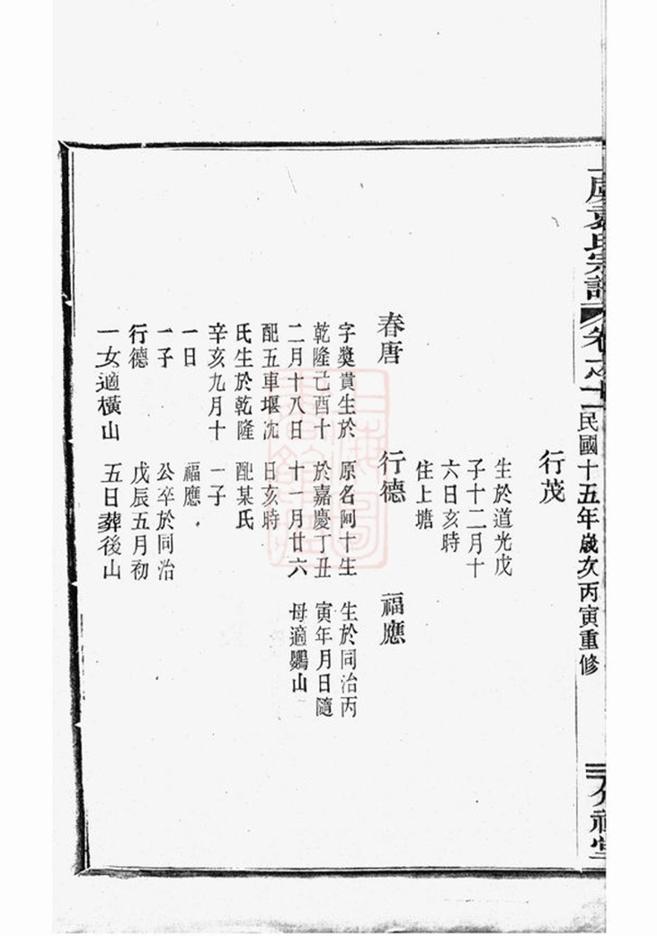 虞袁氏宗譜
卷之十一
民國十五年歲次丙寅重修
行茂
生於道光戊
子十二月十
六日亥時
住上塘
春唐
字獎貴生於
乾隆己酉十
二月十八日
配五車堰沈
氏生於乾隆
辛亥九月十
一日
一子
行德
一女適橫山
行德
原名阿十生
於嘉慶丁丑
十一月廿六
日亥時
配某氏
一子
福應
公卒於同治
戊辰五月初
五日葬後山
福應
生於同治丙
寅年月日隨
母適鸚山